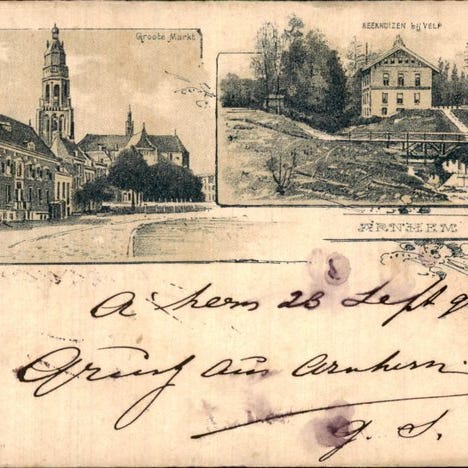 Groote Markt
BEEKHUIZEN bij VELP
ARNHEM
A'hem 23 Sept 9
Gruß aus Arnhem.
G. S.